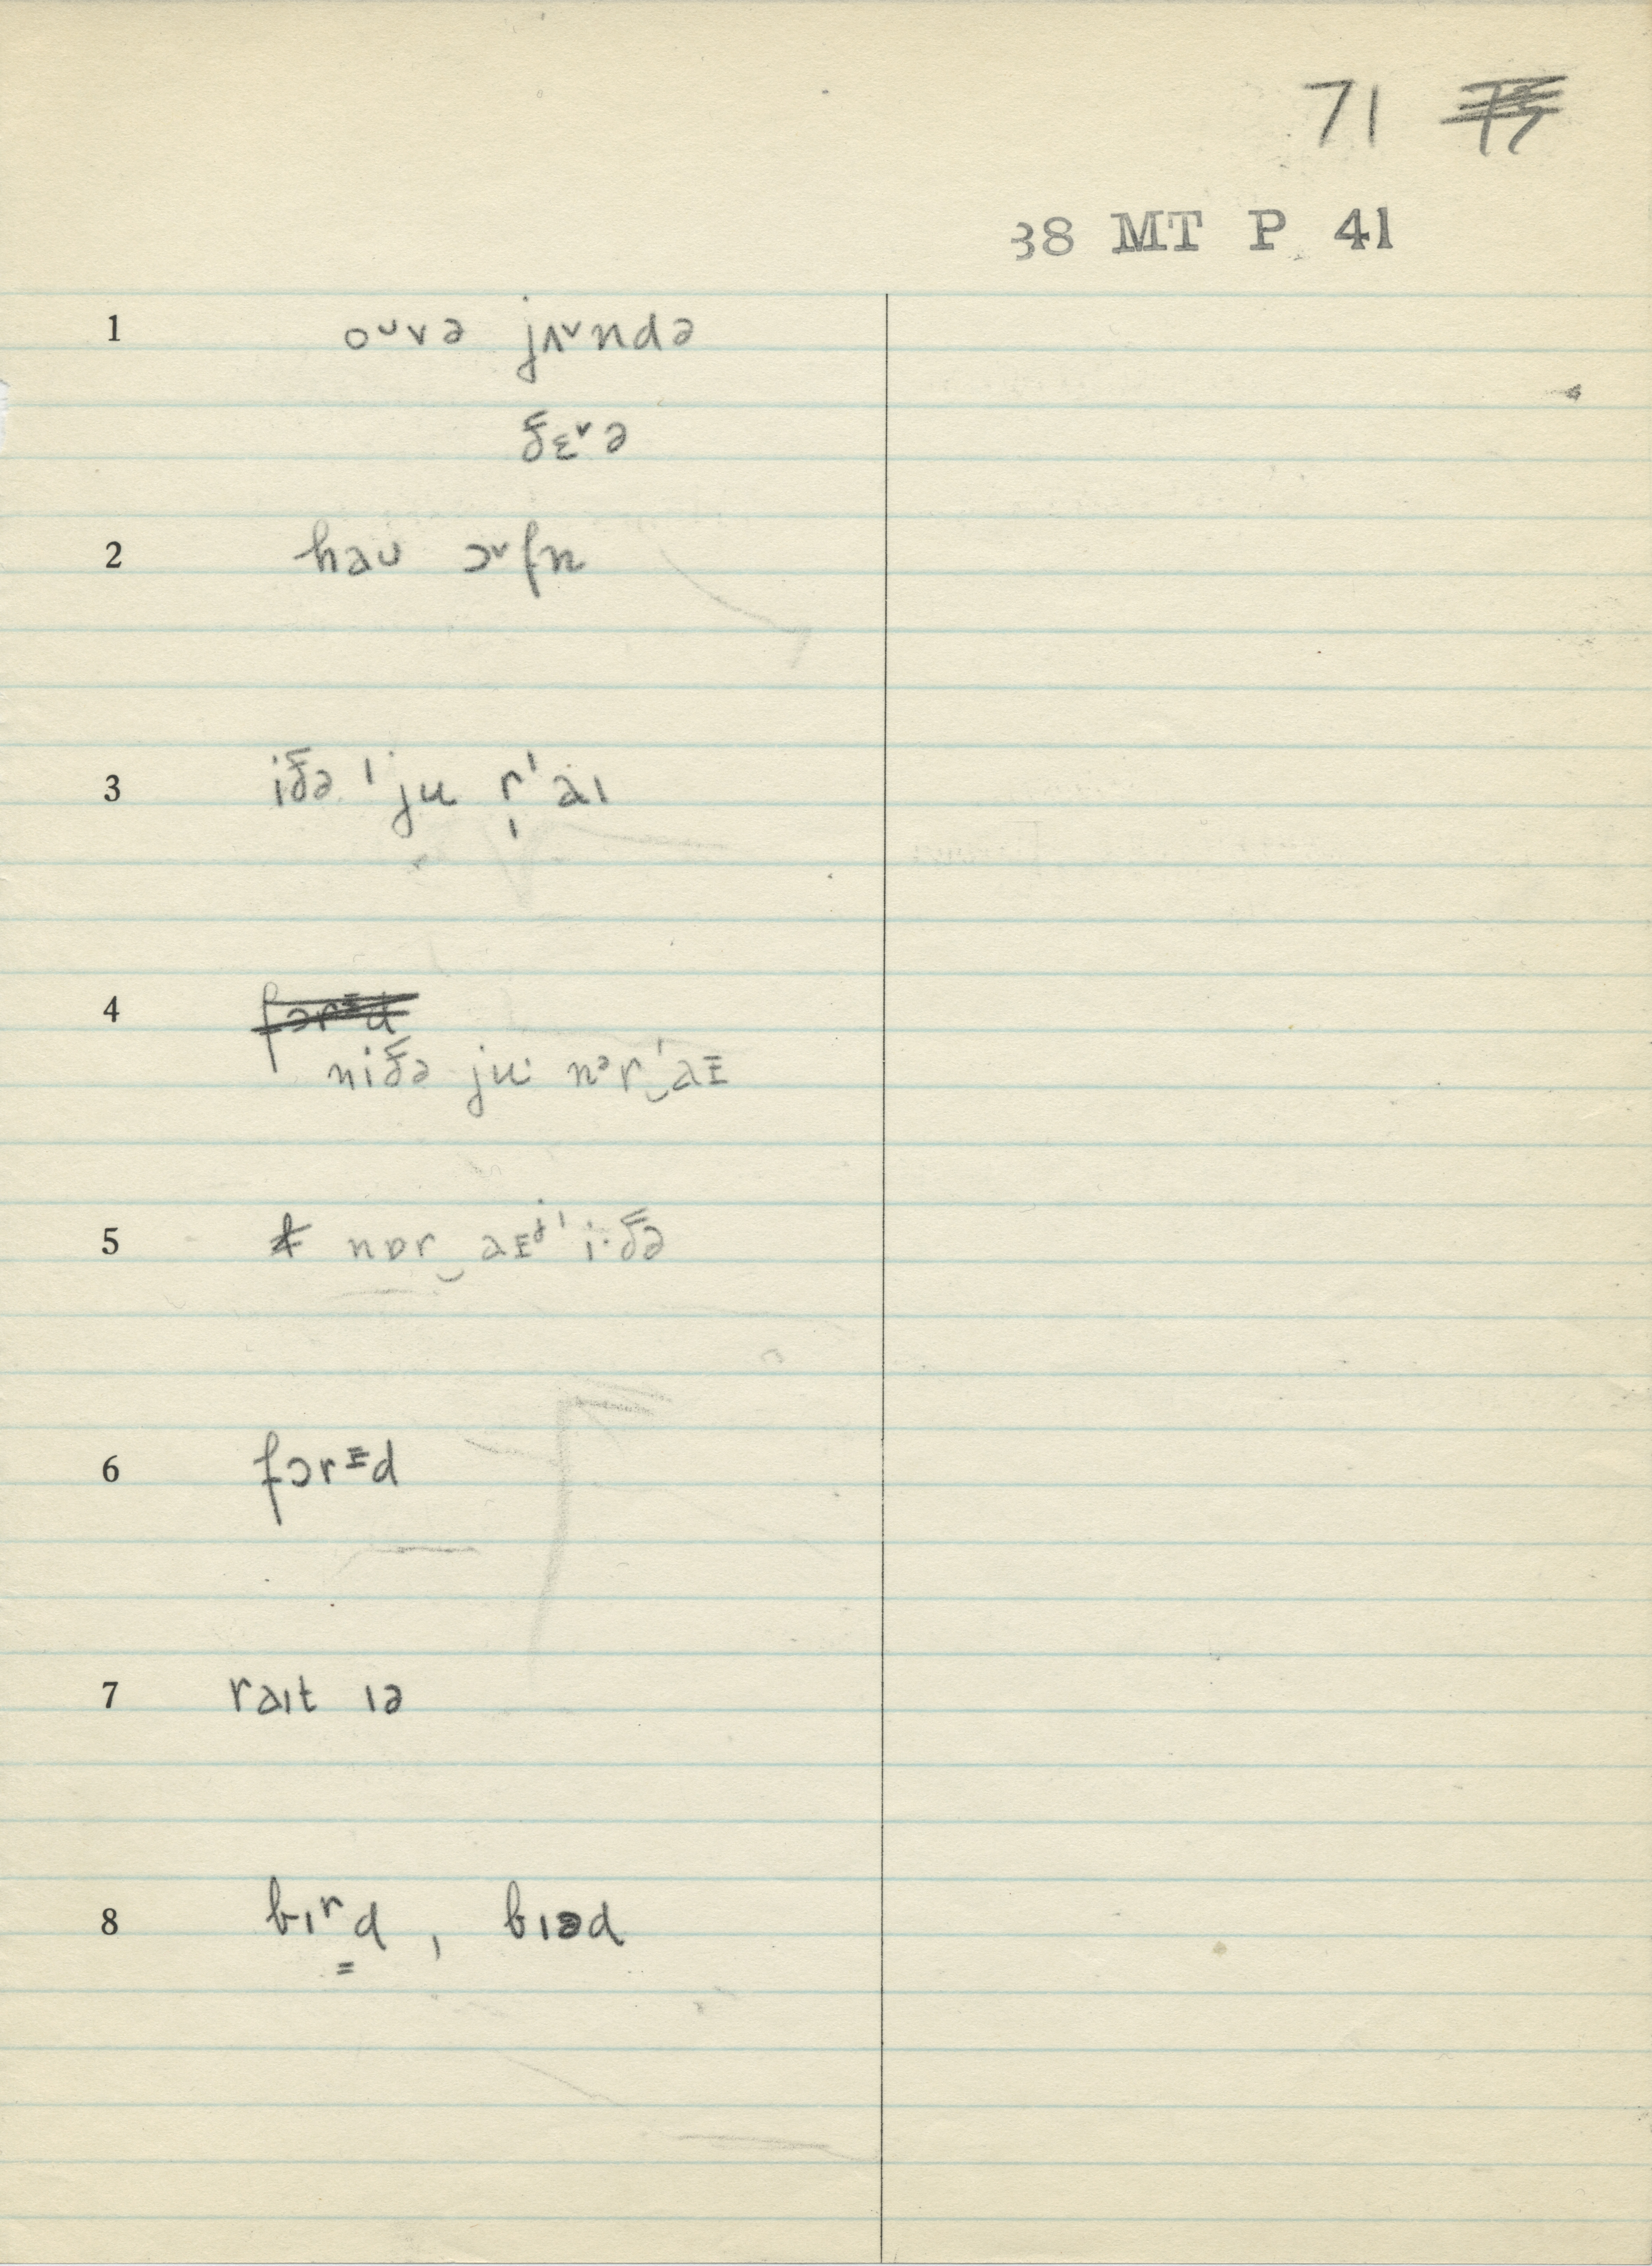 71
38 MT P 41
1 oᴜvə jʌ˅ndə
ðɛ˅ə
2 haᴜ ɔ˅fn
3 iðə ˈju r̩ˈaɪ
4 fɔrᵻd
niðə ju· nᵊrˈ‿aᵻ
5 nɒr‿aᵻʲˈi·ðə
6 fɔrᵻd
7 raɪt ɪə
8 bɪʳd̳, bɪəd